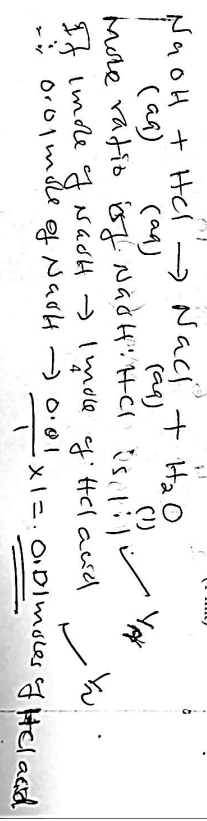 NaOH + HCl → NaCl + H₂O
(aq) (aq) (aq) (l)
Mole ratio of NaOH:HCl is 1:1 ✓ ½
If 1mole of NaOH → 1mole of HCl acid ✓ ½
∴ 0.01mole of NaOH → 0.01/1 × 1 = 0.01moles of HCl acid